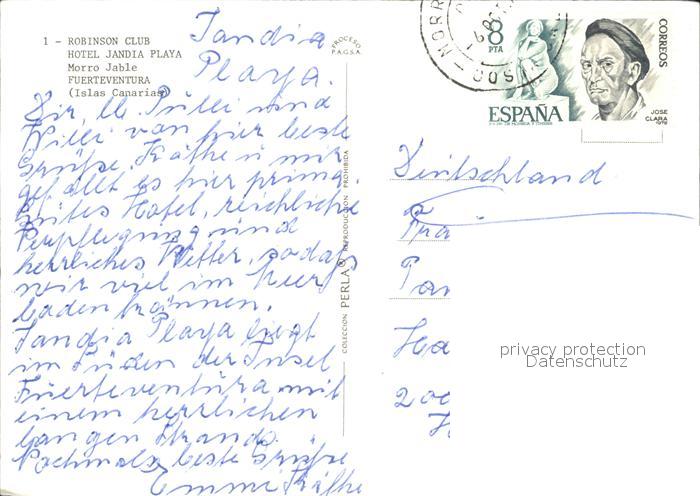 1 - ROBINSON CLUB
HOTEL JANDIA PLAYA
Morro Jable
FUERTEVENTURA
(Islas Canarias)
PROCESO
P.A.G.S.A.
Jandia
Playa.
Dir, lb. Pülli und
Willi von hier beste
Grüße. Käthe u mir
gefällt es hier prima.
Gutes Hotel, reichliche
Verpflegung und
herrliches Wetter, sodass
wir viel im Meer
baden können.
Jandia Playa liegt
im Süden der Insel
Fuerteventura mit
einem herrlichen
langen Strand.
Nochmals beste Grüße
Emmi Käthe
COLECCION PERLA® REPRODUCCION PROHIBIDA
8
PTA
ESPAÑA
CORREOS
JOSE
CLARA
1978
Deutschland
Fra
Ha
200
H
privacy protection
Datenschutz